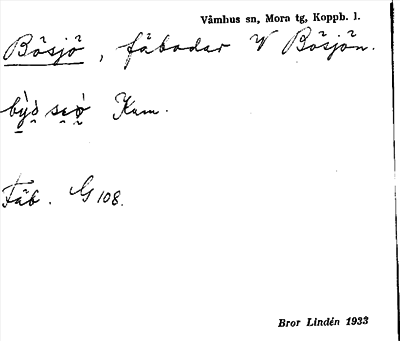 Våmhus sn, Mora tg, Koppb. l.
Bösjö, fäbodar W Bösjön.
Kum.
Fäb. G 108.
Bror Lindén 1933